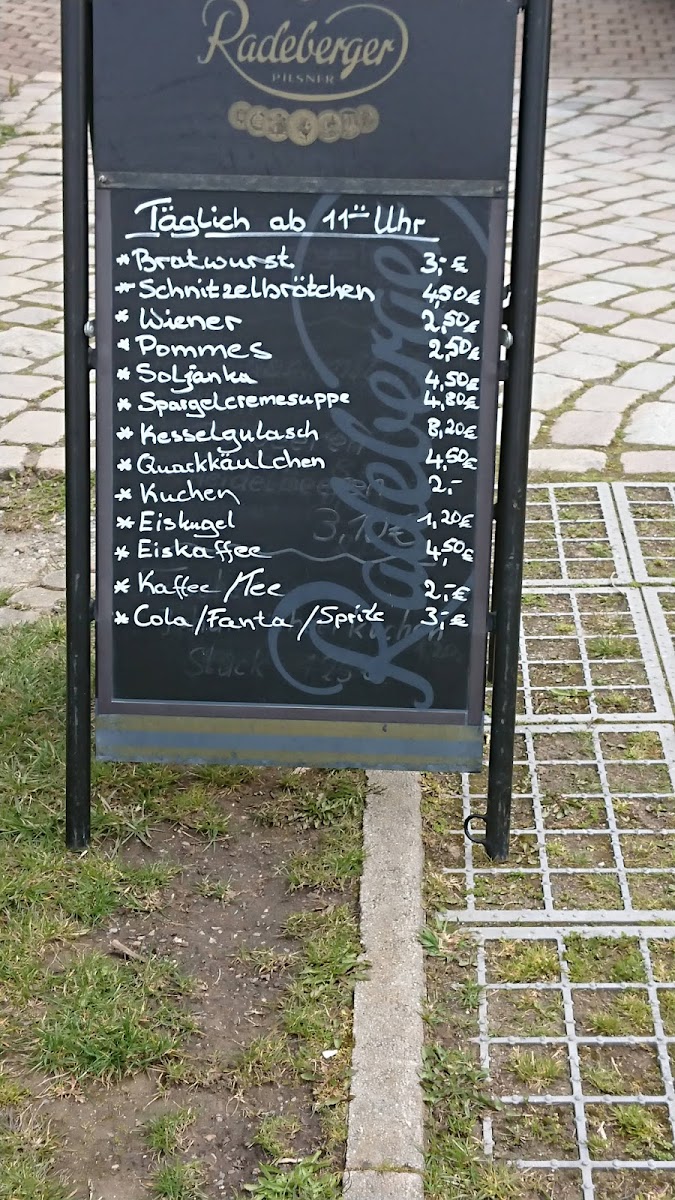 Radeberger
PILSNER
Täglich ab 11⁰⁰ Uhr
* Bratwurst 3,-€
* Schnitzelbrötchen 4,50€
* Wiener 2,50€
* Pommes 2,50€
* Soljanka 4,50€
* Spargelcremesuppe 4,80€
* Kesselgulasch 8,20€
* Quarkkäulchen 4,50€
* Kuchen 2,-
* Eiskugel 1,20€
* Eiskaffee 4,50€
* Kaffee/Tee 2,-€
* Cola/Fanta/Sprite 3,-€
Radeberger
3,10€
Stück